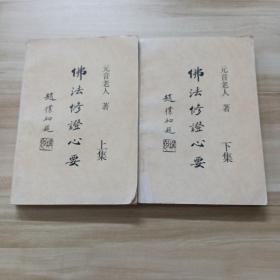 元音老人 著
佛法修證心要
上集
趙樸初題
元音老人 著
佛法修證心要
下集
趙樸初題